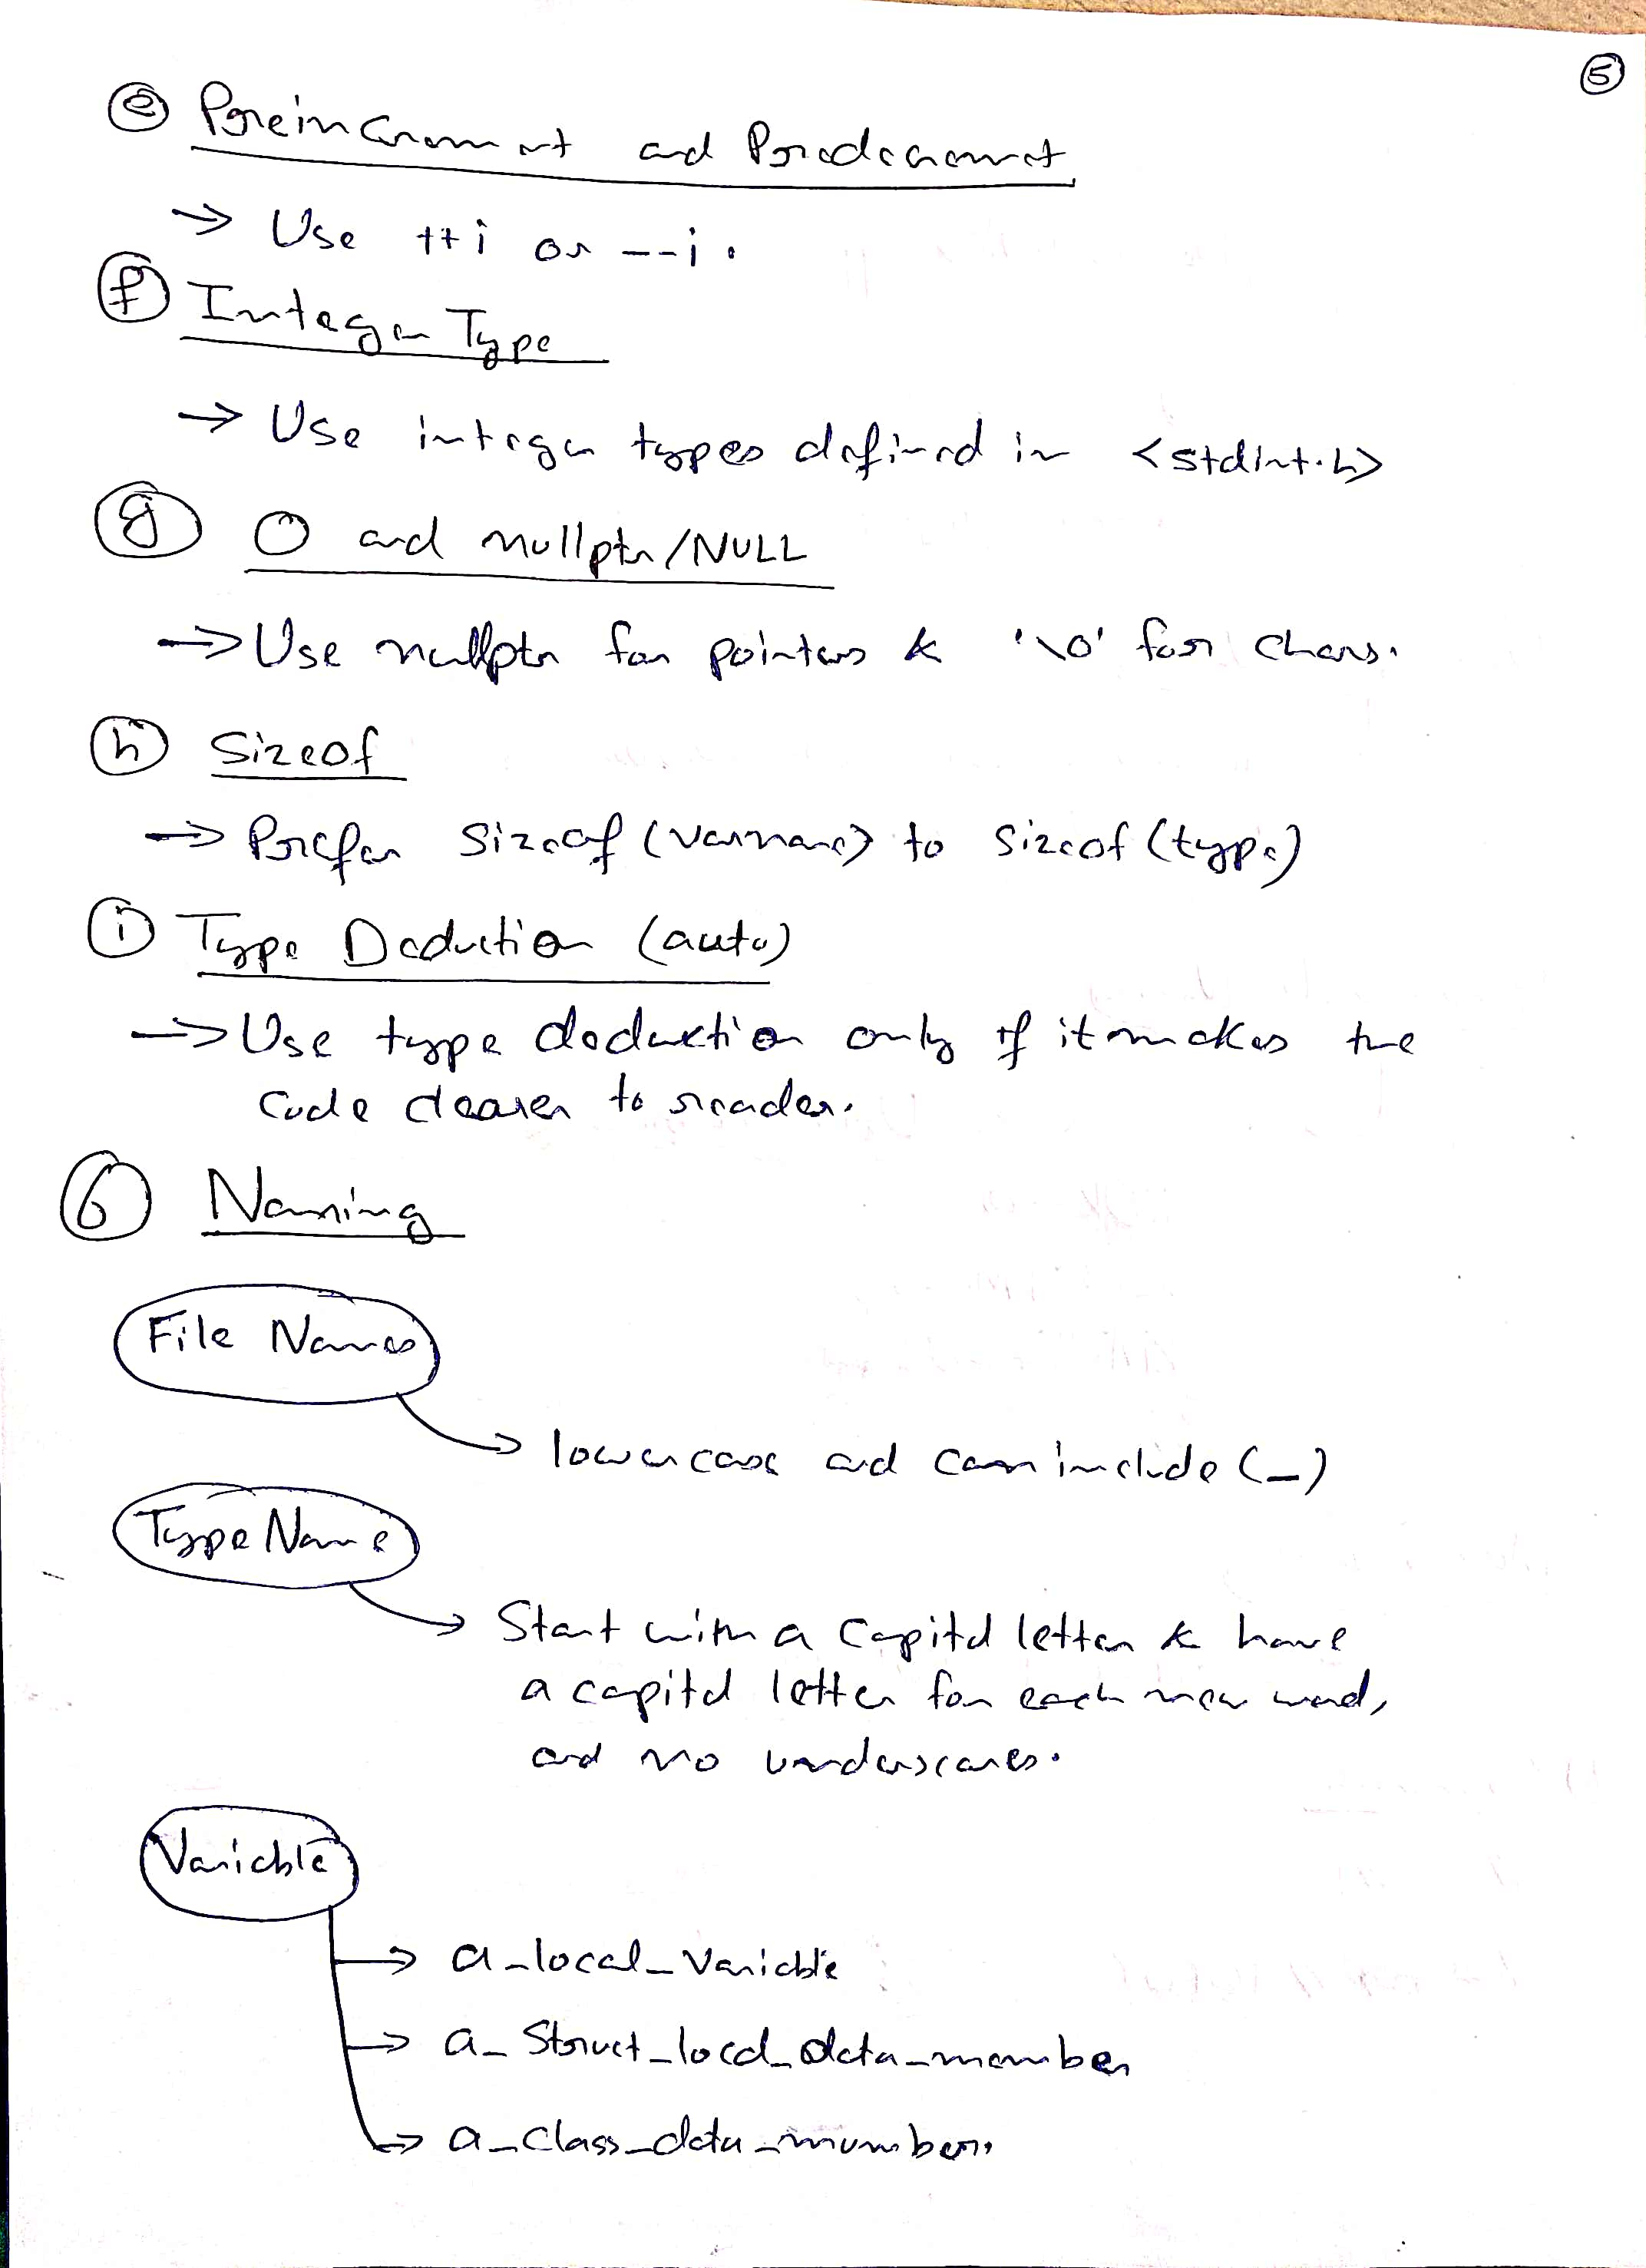 5
e Preincrement and Predecrement
→ Use ++i or --i.
f Integer Type
→ Use integer types defined in <stdint.h>
g 0 and nullptr/NULL
→ Use nullptr for pointers & '\0' for chars.
h Sizeof
→ Prefer Sizeof (varname) to sizeof (type)
i Type Deduction (auto)
→ Use type deduction only if it makes the
code clearer to reader.
6 Naming
File Names
→ lowercase and can include (_)
Type Name
→ Start with a Capital letter & have
a capital letter for each new word,
and no underscores.
Variable
→ a_local_variable
→ a_Struct_local_data_member
→ a_Class_data_member.